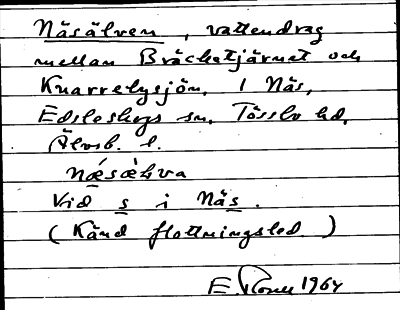 Näsälven, vattendrag
mellan Bräcketjärnet och
Knarrelysjön, i Näs,
Edsleskogs sn, Tössbo hd,
Älvsb. l.
næ̀sæ̀lva
Vid s i Näs.
(Känd flottningsled)
E. 1964